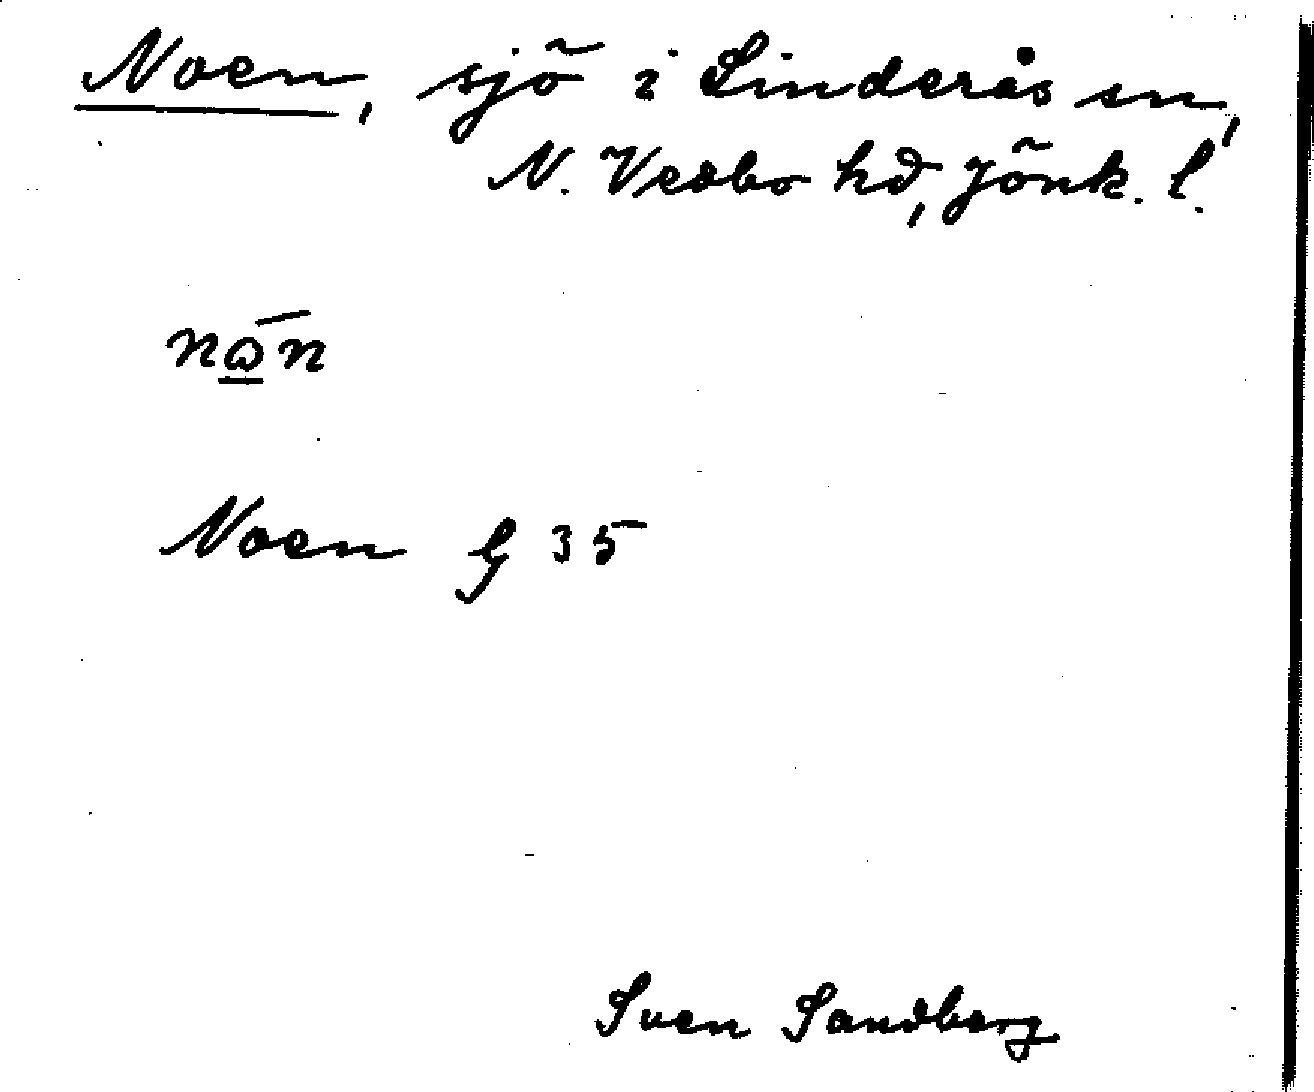 Noen, sjö i Linderås sn,
N. Vedbo hd, Jönk. l.
Noen G 35
Sven Sandberg